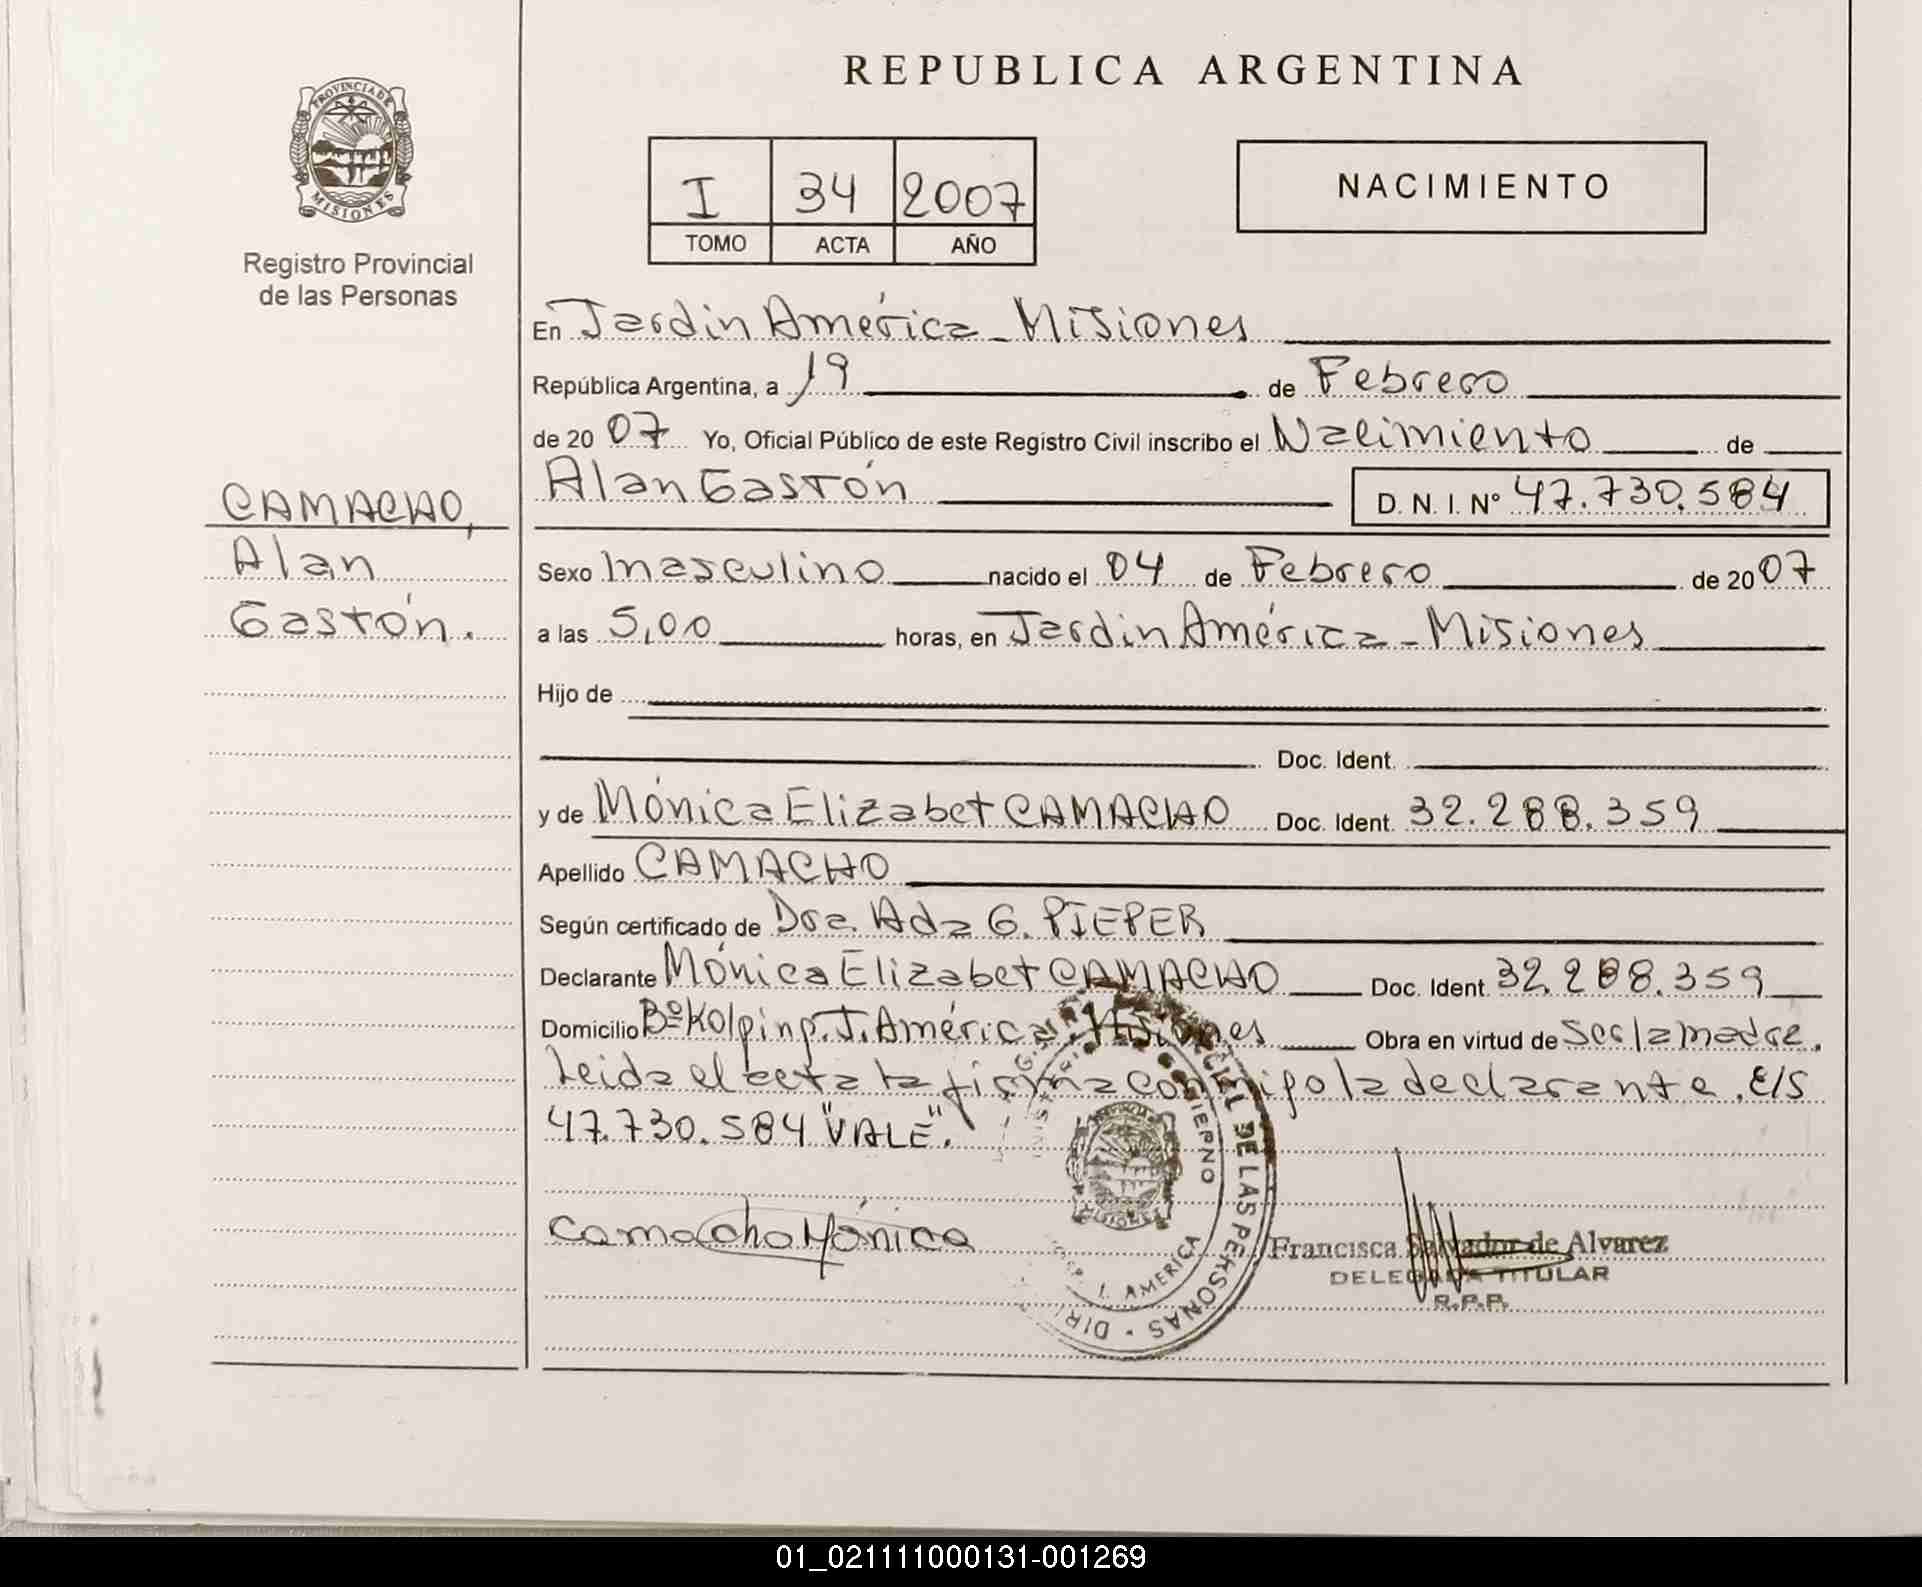 REPUBLICA ARGENTINA
PROVINCIA DE
MISIONES
Registro Provincial
de las Personas
I 34 2007
TOMO ACTA AÑO
NACIMIENTO
CAMACHO,
Alan
Gastón.
En Jardin América - Misiones
República Argentina, a 19 de Febrero
de 2007 Yo, Oficial Público de este Registro Civil inscribo el Nacimiento de
Alan Gastón D. N. I. Nº 47.730.584
Sexo Masculino nacido el 04 de Febrero de 2007
a las 5,00 horas, en Jardin América - Misiones
Hijo de
Doc. Ident.
y de Mónica Elizabet CAMACHO Doc. Ident. 32.288.359
Apellido CAMACHO
Según certificado de Dra. Ada G. PIEPER
Declarante Mónica Elizabet CAMACHO Doc. Ident. 32.288.359
Domicilio Bº Kolping. J. América. Misiones Obra en virtud de Ser la madre.
Leida el acta la firma conmigo la declarante. E/S
47.730.584 "VALE".
Camacho Mónica
GOBIERNO
DE LAS PERSONAS
J. AMERICA
Francisca Salvador de Alvarez
DELEGADA TITULAR
R.P.P.
01_021111000131-001269